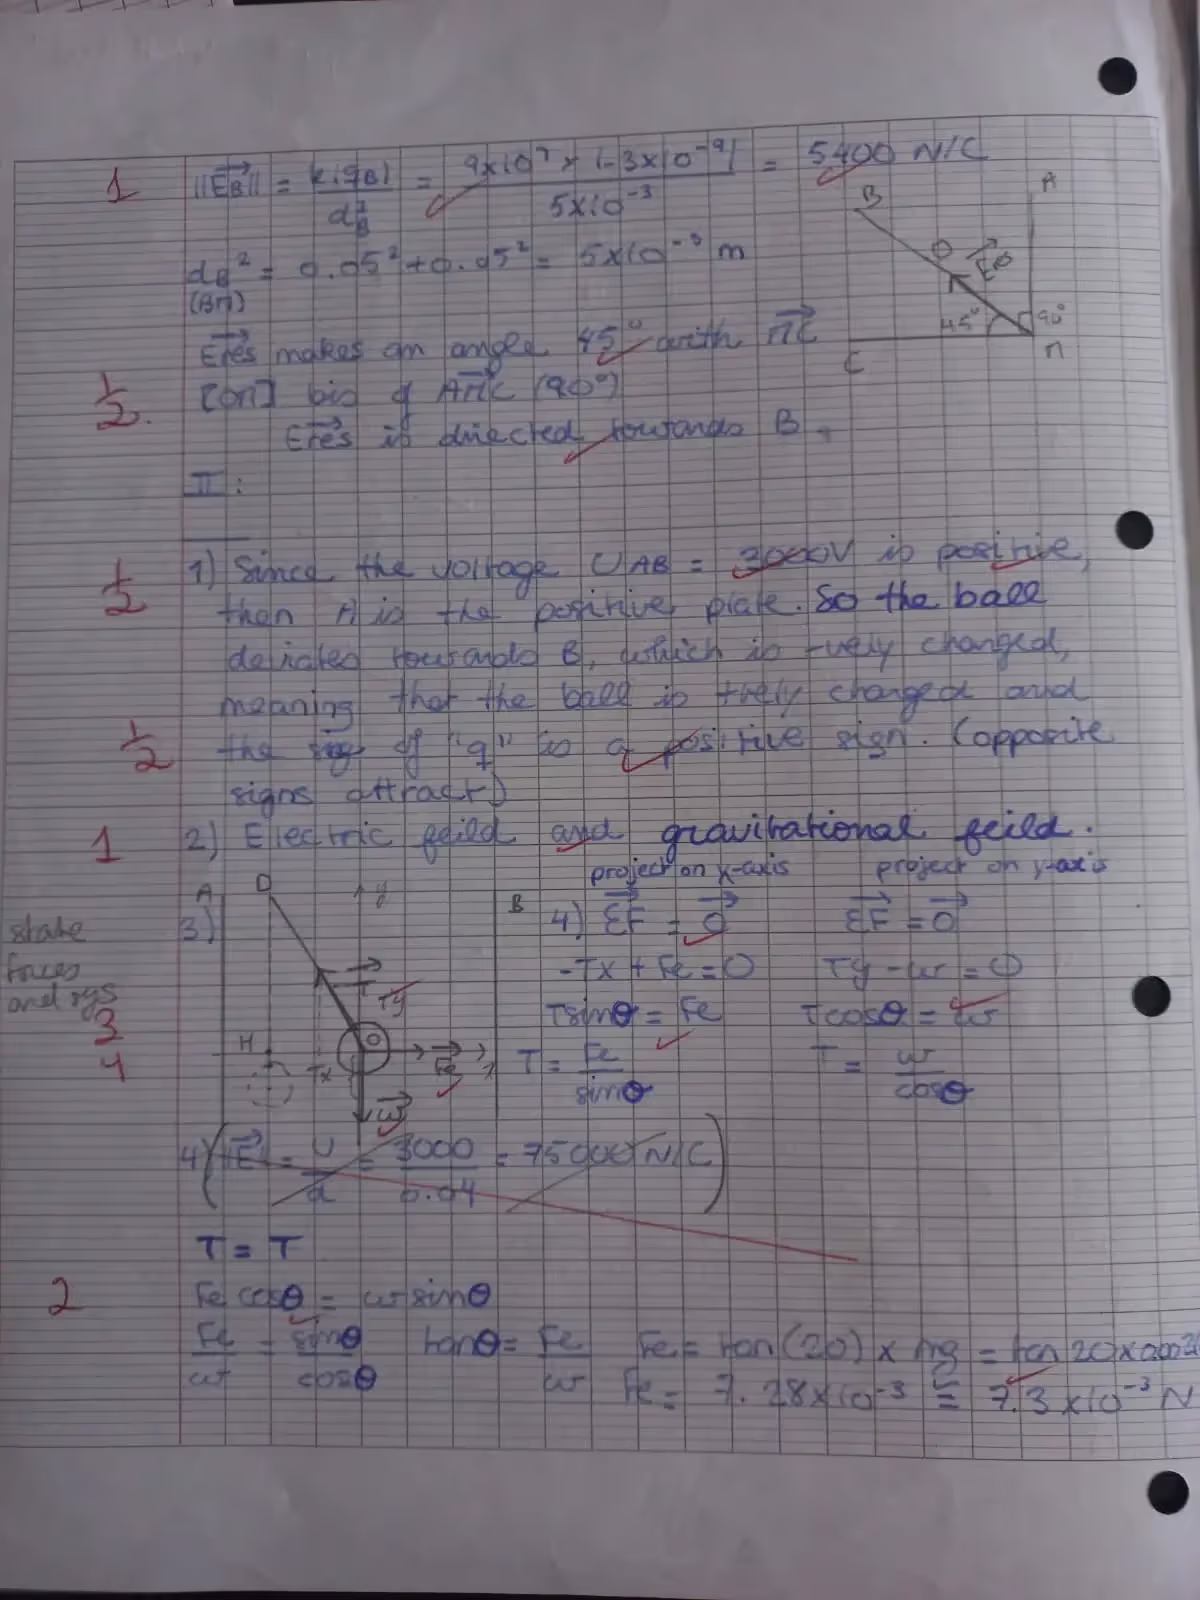 1 ||EB|| = k|qB| / dB² = 9x10⁹ x |-3x10⁻⁹| / 5x10⁻³ = 5400 N/C
dB² = 0.05² + 0.05² = 5x10⁻³ m
(BM)
B A O EB 45° 90° C M
Eres makes an angle 45° with MC
1/2. [OM] bis of AMC (90°)
Eres is directed towards B.
II:
1/2 1) Since the voltage UAB = 3000V is positive,
then A is the positive plate. So the ball
deviates towards B, which is -vely charged,
meaning that the ball is +vely charged and
1/2 the sig of "q" is a positive sign. (opposite
signs attract)
1 2) Electric feild and gravitational feild.
project on x-axis project on y-axis
A O y B 4) ΣF = 0 ΣF = 0
3)
state
forces
and sys
3/4
T Ty H Tx Fe x W
-Tx + Fe = 0 Ty - w = 0
Tsinθ = Fe Tcosθ = w
T = Fe / sinθ T = w / cosθ
4) (|E| = U / d = 3000 / 0.04 = 75000 N/C)
T = T
2 Fe cosθ = w sinθ
Fe / w = sinθ / cosθ tanθ = Fe / w Fe = tan(20) x mg = tan 20 x
Fe = 7.28x10⁻³ ≅ 7.3x10⁻³ N